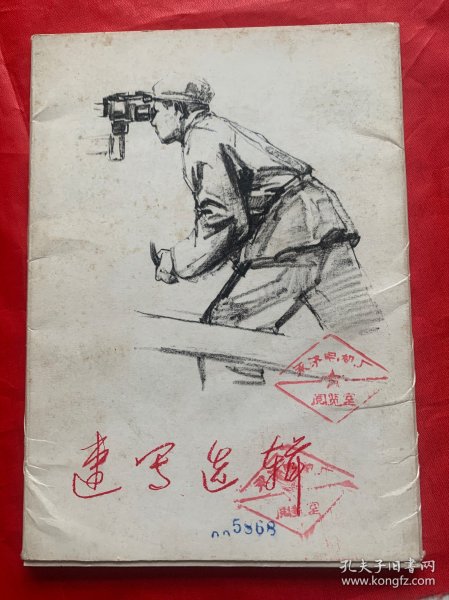 电机厂
阅览室
速写选辑
机厂
阅览室
005868
孔夫子旧书网
www.kongfz.com